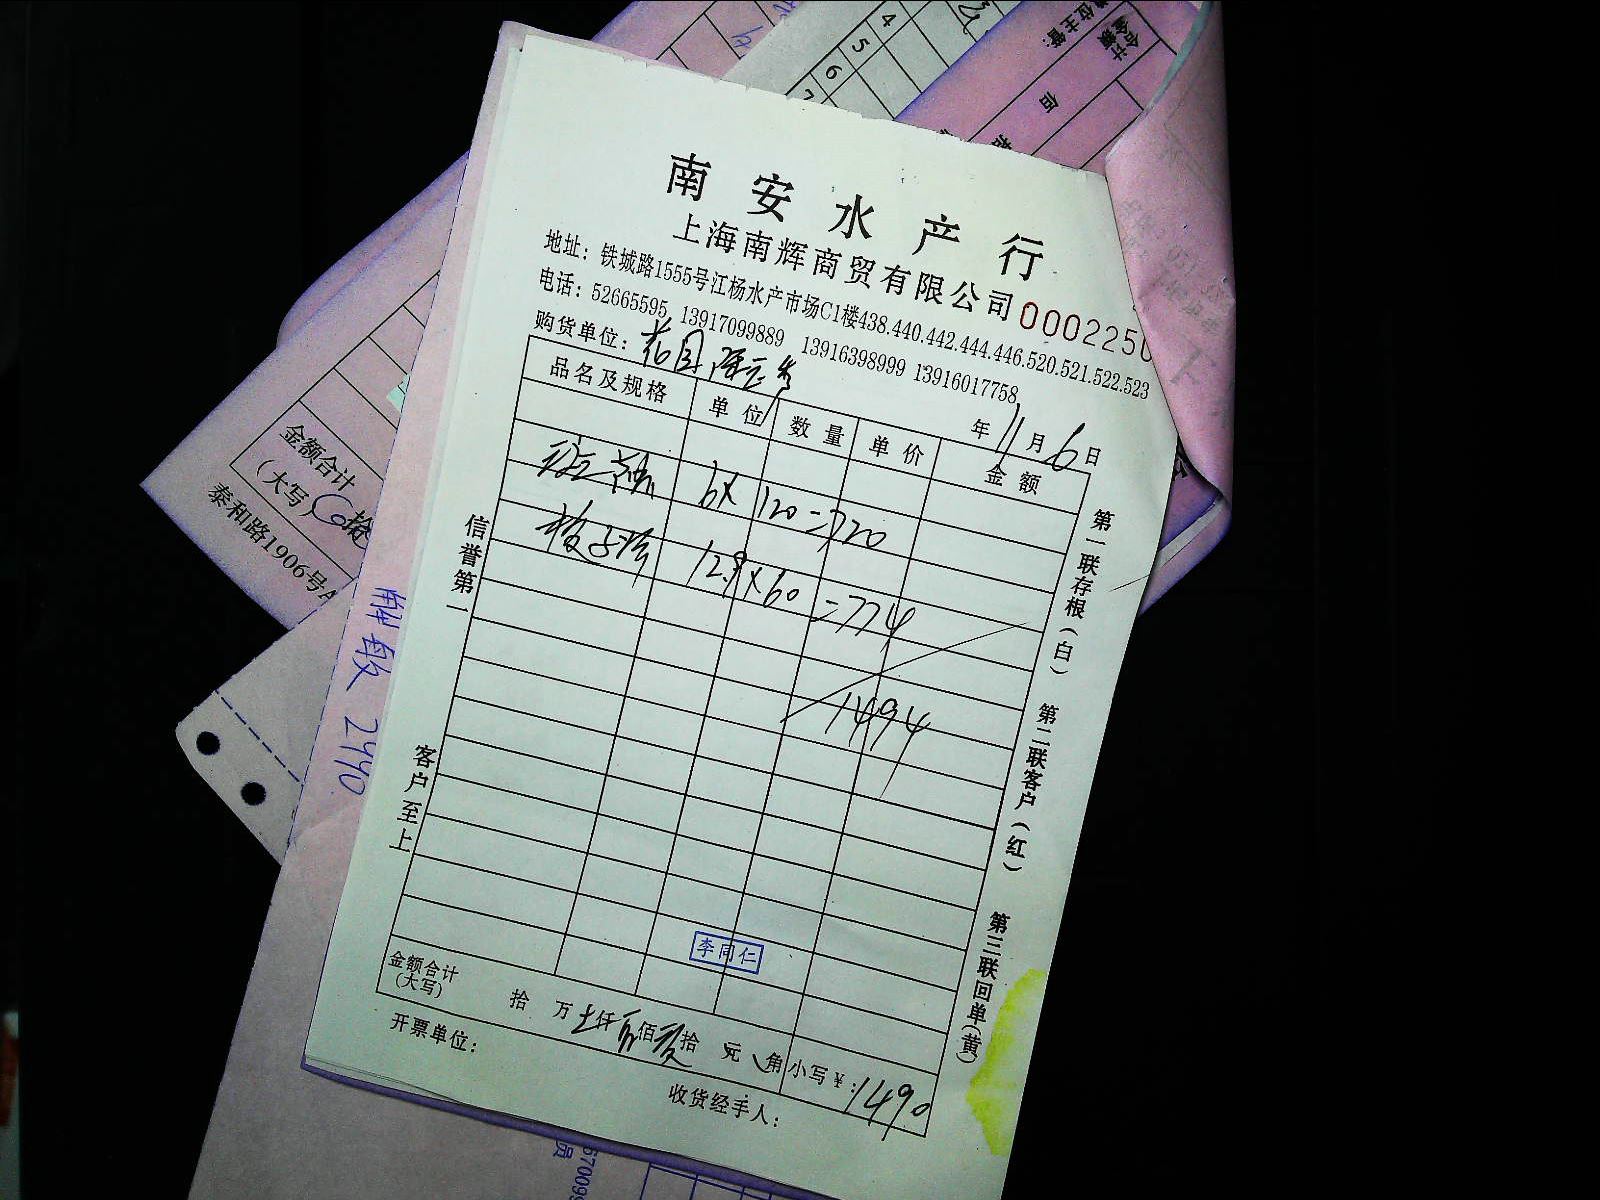 南安水产行
上海南辉商贸有限公司 0002250
地址：铁城路1555号江杨水产市场C1楼438.440.442.444.446.520.521.522.523
电话：52665595 13917099889 13916398999 13916017758
购货单位：花园
年11月6日
品名及规格 单位 数量 单价 金额
6×120=720
12.9×60=774
1494
李同仁
金额合计（大写） 拾 万 仟 佰 拾 元 角 小写￥：1490
开票单位：
收货经手人：
信誉第一
客户至上
第一联存根（白） 第二联客户（红） 第三联回单（黄）
金额合计
（大写） 拾
泰和路1906号A
2440
4
5
6
7
合计
金额
佰
员